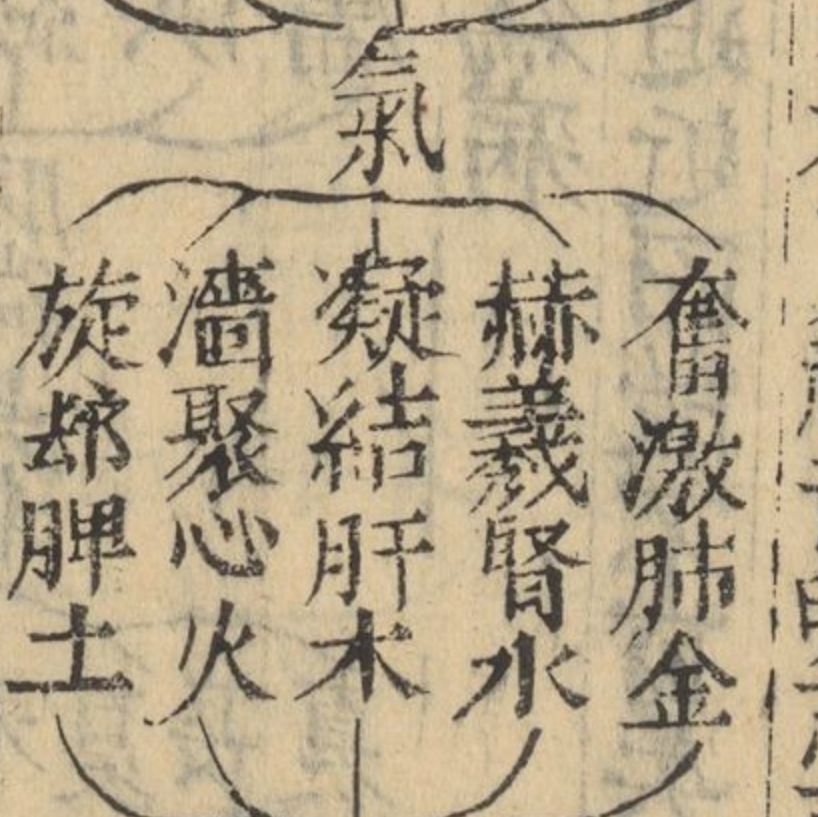 氣
奮激肺金
赫羲腎水
凝結肝木
濇聚心火
旋却脾土